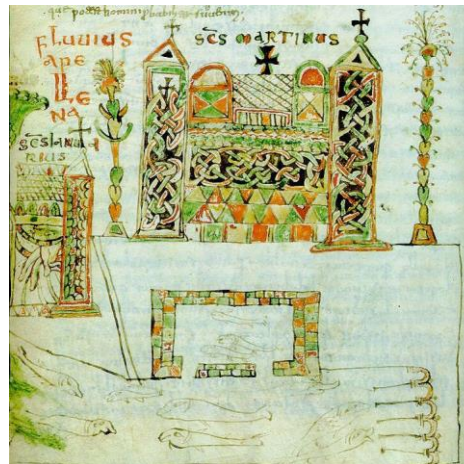 que
FLUVIUS
APE
LLE
NA
SCS MARTINUS
SCS IANUA
RIUS